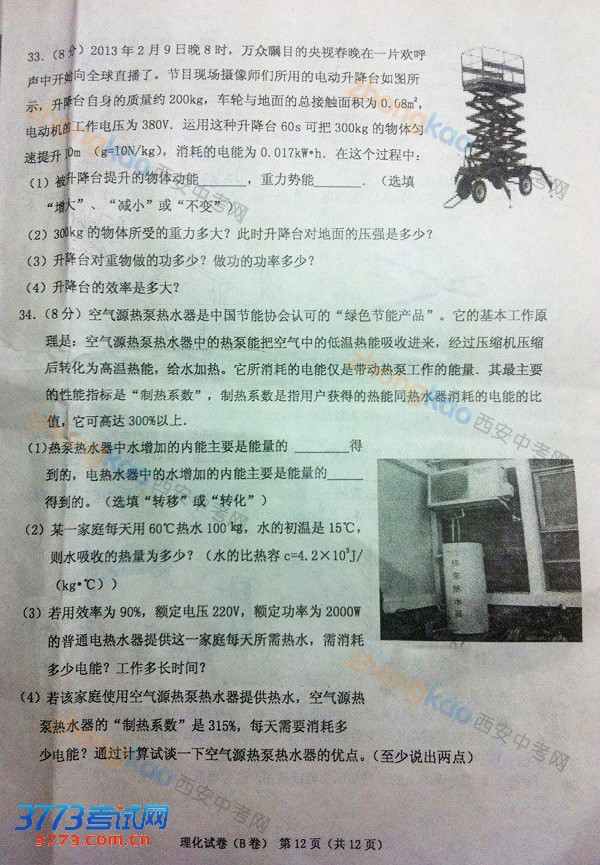 33.（8分）2013年2月9日晚8时，万众瞩目的央视春晚在一片欢呼
声中开始向全球直播了。节目现场摄像师们所用的电动升降台如图所
示，升降台自身的质量约200kg，车轮与地面的总接触面积为0.08m²，
电动机的工作电压为380V．运用这种升降台60s可把300kg的物体匀
速提升10m （g=10N/kg），消耗的电能为0.017kW•h．在这个过程中：
（1）被升降台提升的物体动能______，重力势能______．（选填
“增大”、“减小”或“不变”）
（2）300kg的物体所受的重力多大？此时升降台对地面的压强是多少？
（3）升降台对重物做的功多少？做功的功率多少？
（4）升降台的效率是多大？
34.（8分）空气源热泵热水器是中国节能协会认可的“绿色节能产品”。它的基本工作原
理是：空气源热泵热水器中的热泵能把空气中的低温热能吸收进来，经过压缩机压缩
后转化为高温热能，给水加热。它所消耗的电能仅是带动热泵工作的能量．其最主要
的性能指标是“制热系数”，制热系数是指用户获得的热能同热水器消耗的电能的比
值，它可高达300%以上．
（1)热泵热水器中水增加的内能主要是能量的 ______得
到的，电热水器中的水增加的内能主要是能量的_____
得到的。（选填“转移”或“转化”）
（2）某一家庭每天用60℃热水100㎏，水的初温是15℃，
则水吸收的热量为多少？（水的比热容c=4.2×10³J/
（kg•℃））
（3）若用效率为90%，额定电压220V，额定功率为2000W
的普通电热水器提供这一家庭每天所需热水，需消耗
多少电能？工作多长时间？
（4）若该家庭使用空气源热泵热水器提供热水，空气源热
泵热水器的“制热系数”是315%，每天需要消耗多
少电能？通过计算试谈一下空气源热泵热水器的优点。（至少说出两点）
热泵热水器
理化试卷（B卷） 第12页（共12页）
3773考试网
3773.com.cn
zhongkao西安中考网
zhongkao西安中考网
zhongkao西安中考网
zhongkao西安中考网
zhongkao西安中考网
zhongkao西安中考网